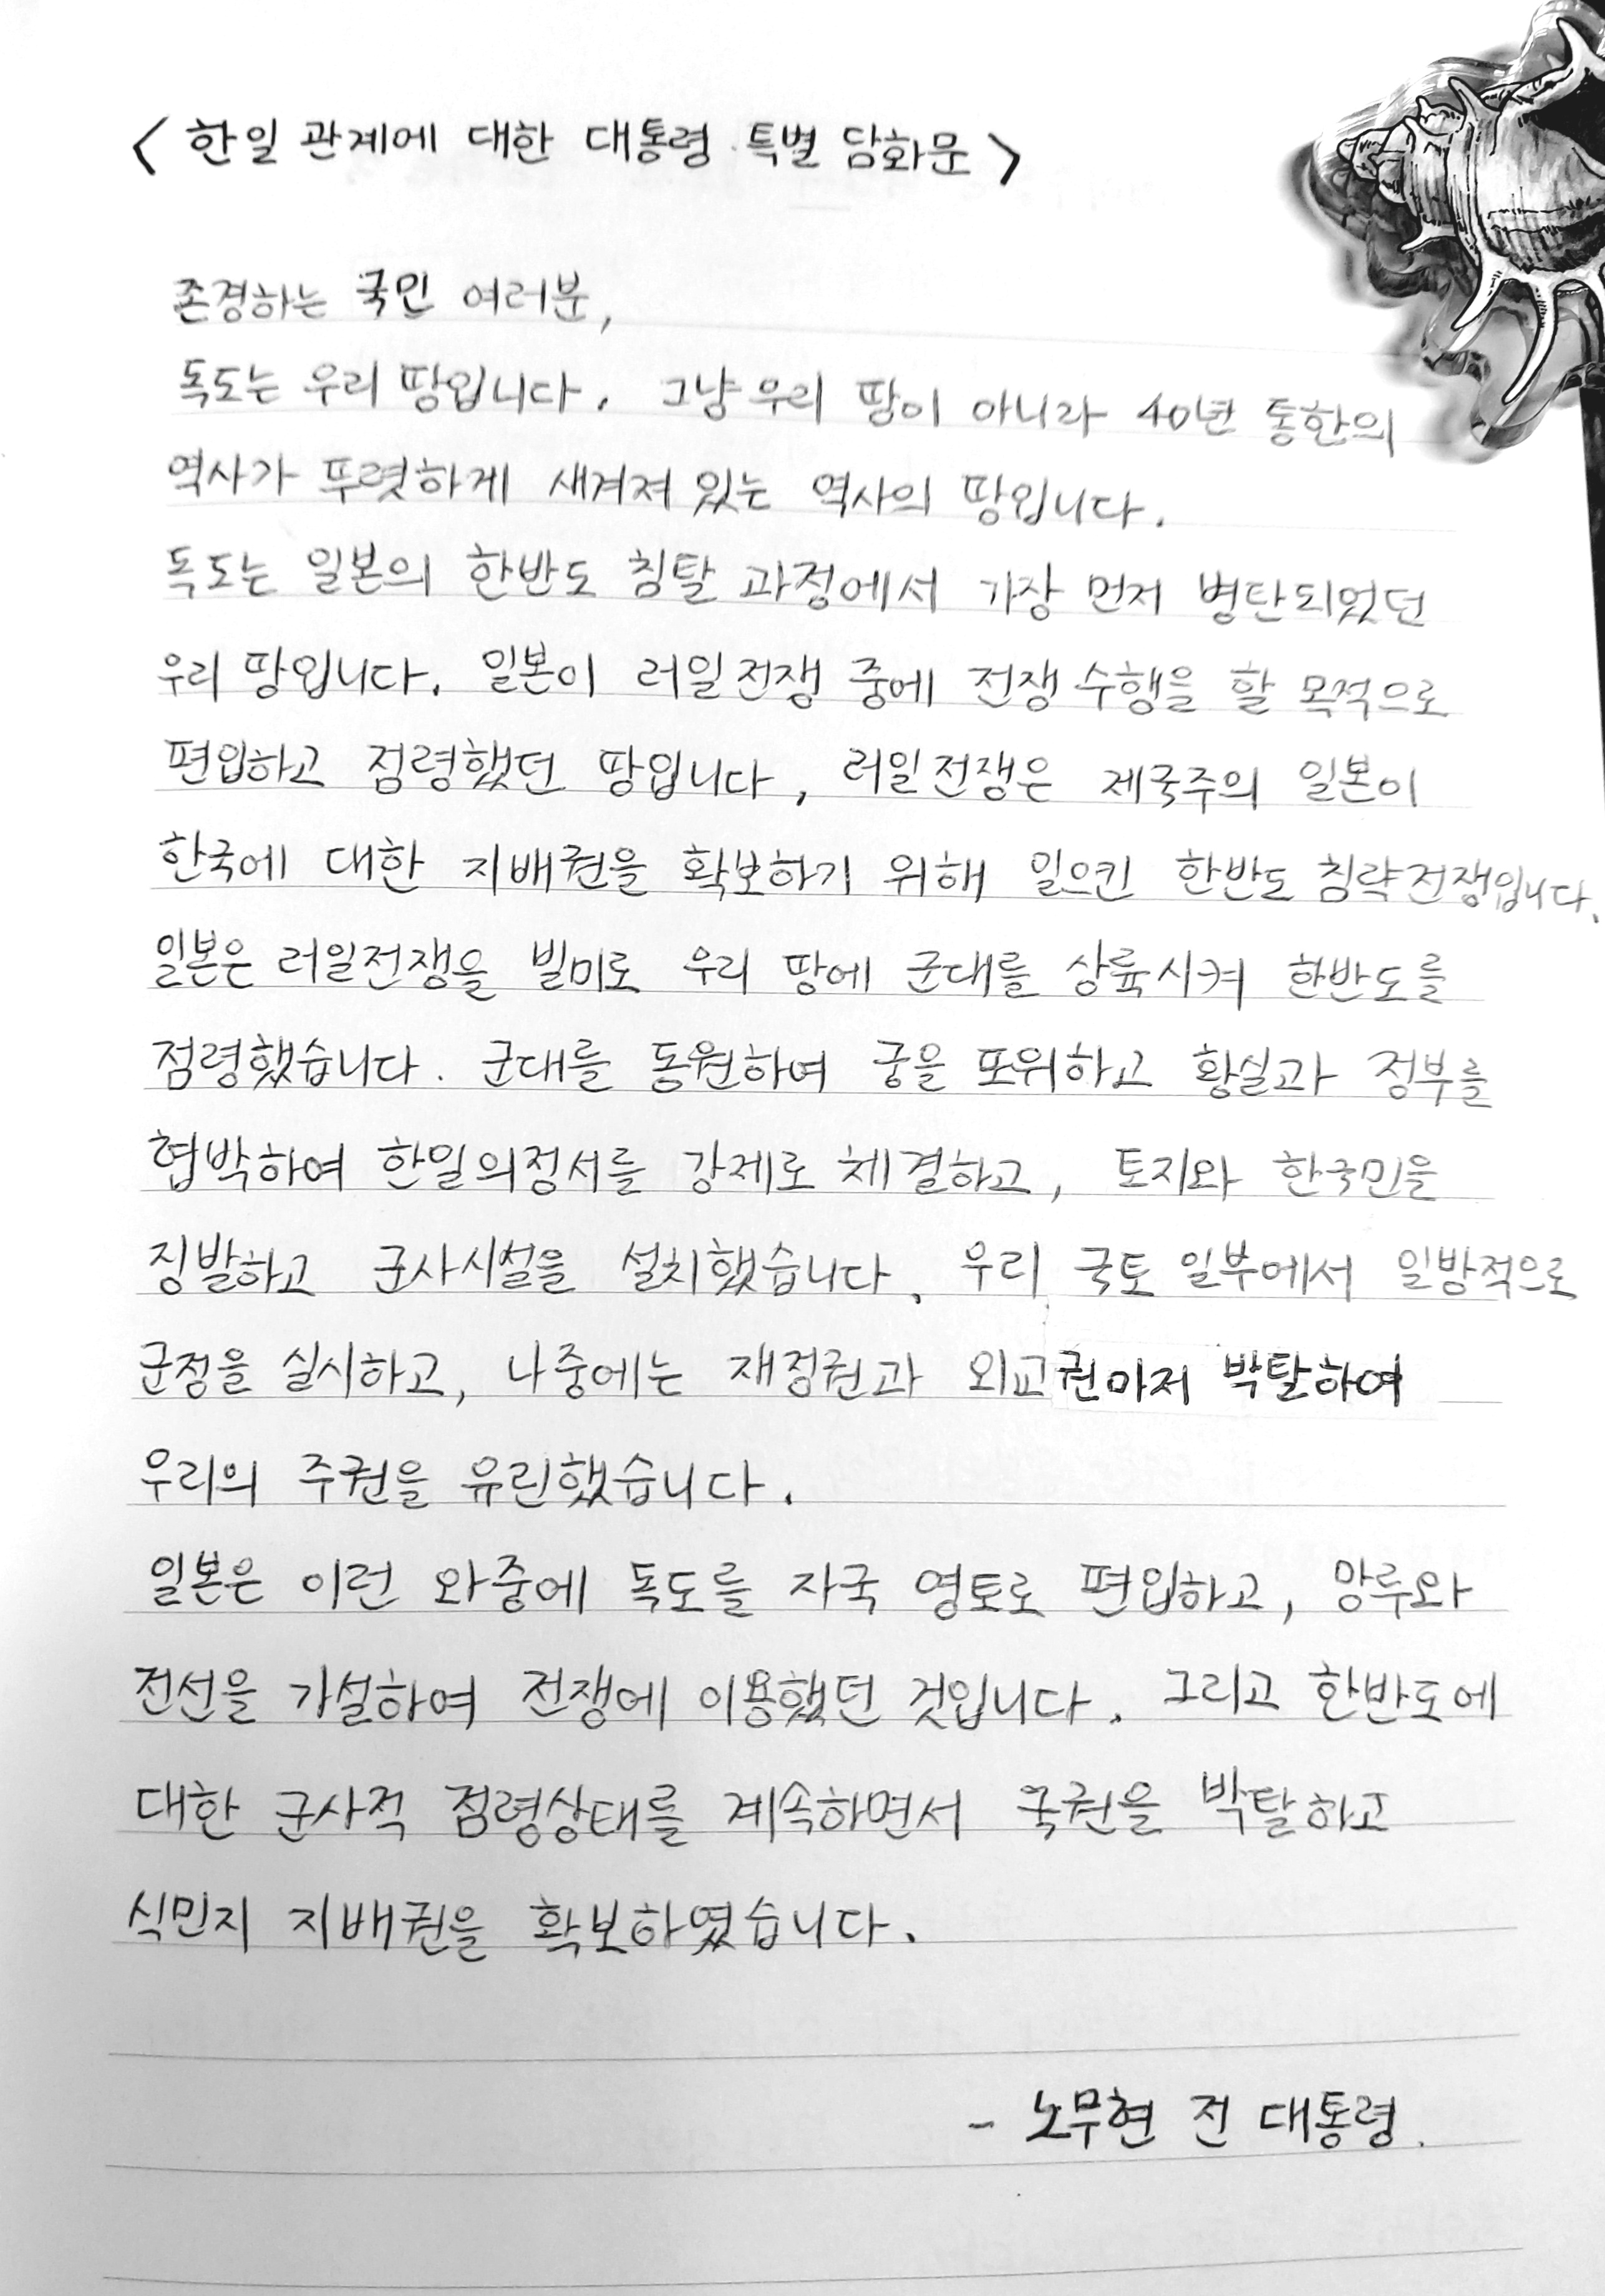 < 한일 관계에 대한 대통령 특별 담화문 >
존경하는 국민 여러분,
독도는 우리 땅입니다. 그냥 우리 땅이 아니라 40년 통한의
역사가 뚜렷하게 새겨져 있는 역사의 땅입니다.
독도는 일본의 한반도 침탈 과정에서 가장 먼저 병탄되었던
우리 땅입니다. 일본이 러일전쟁 중에 전쟁 수행을 할 목적으로
편입하고 점령했던 땅입니다, 러일전쟁은 제국주의 일본이
한국에 대한 지배권을 확보하기 위해 일으킨 한반도 침략전쟁입니다.
일본은 러일전쟁을 빌미로 우리 땅에 군대를 상륙시켜 한반도를
점령했습니다. 군대를 동원하여 궁을 포위하고 황실과 정부를
협박하여 한일의정서를 강제로 체결하고, 토지와 한국민을
징발하고 군사시설을 설치했습니다. 우리 국토 일부에서 일방적으로
군정을 실시하고, 나중에는 재정권과 외교권마저 박탈하여
우리의 주권을 유린했습니다.
일본은 이런 와중에 독도를 자국 영토로 편입하고, 망루와
전선을 가설하여 전쟁에 이용했던 것입니다. 그리고 한반도에
대한 군사적 점령상태를 계속하면서 국권을 박탈하고
식민지 지배권을 확보하였습니다.
- 노무현 전 대통령.